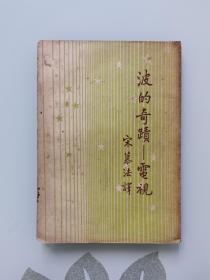 波的奇蹟—電視
宋慕法譯